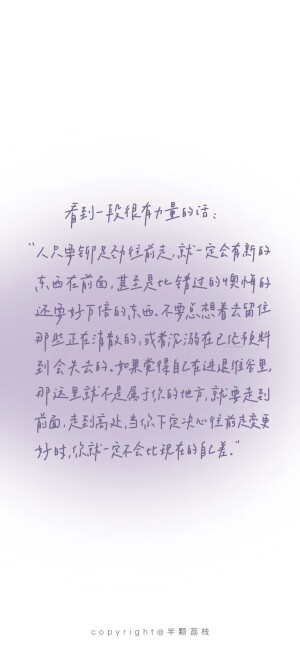 看到一段很有力量的话：
“人只要铆足劲往前走，就一定会有新的
东西在前面，甚至是比错过的懊悔的
还要好万倍的东西。不要总想着去留住
那些正在消散的，或者沉溺在已经预料
到会失去的。如果觉得自己在进退维谷里，
那这里就不是属于你的地方，就要走到
前面，走到高处，当你下定决心往前走变更
好时，你就一定不会比现在的自己差。”
copyright@半颗荔枝